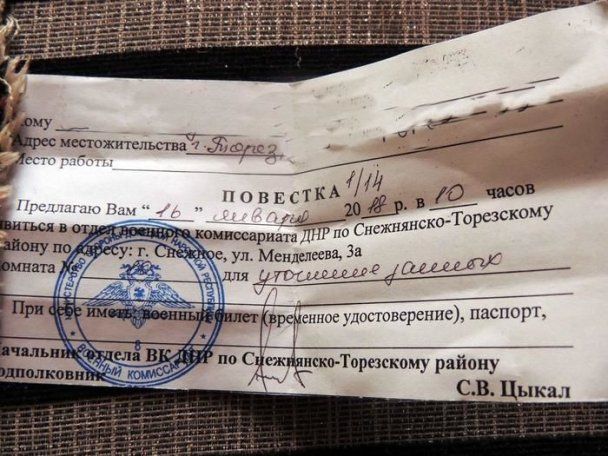 ому
Адрес местожительства г. Торез
Место работы
ПОВЕСТКА 1/14
Предлагаю Вам “ 16 ” января 2018 г. в 10 часов
явиться в отдел военного комиссариата ДНР по Снежнянско-Торезскому
району по адресу: г. Снежное, ул. Менделеева, 3а
омната № для уточнение данных
При себе иметь: военный билет (временное удостоверение), паспорт,
Начальник отдела ВК ДНР по Снежнянско-Торезскому району
одполковник
С.В. Цыкал
ВОЕННЫЙ КОМИССАРИАТ
8